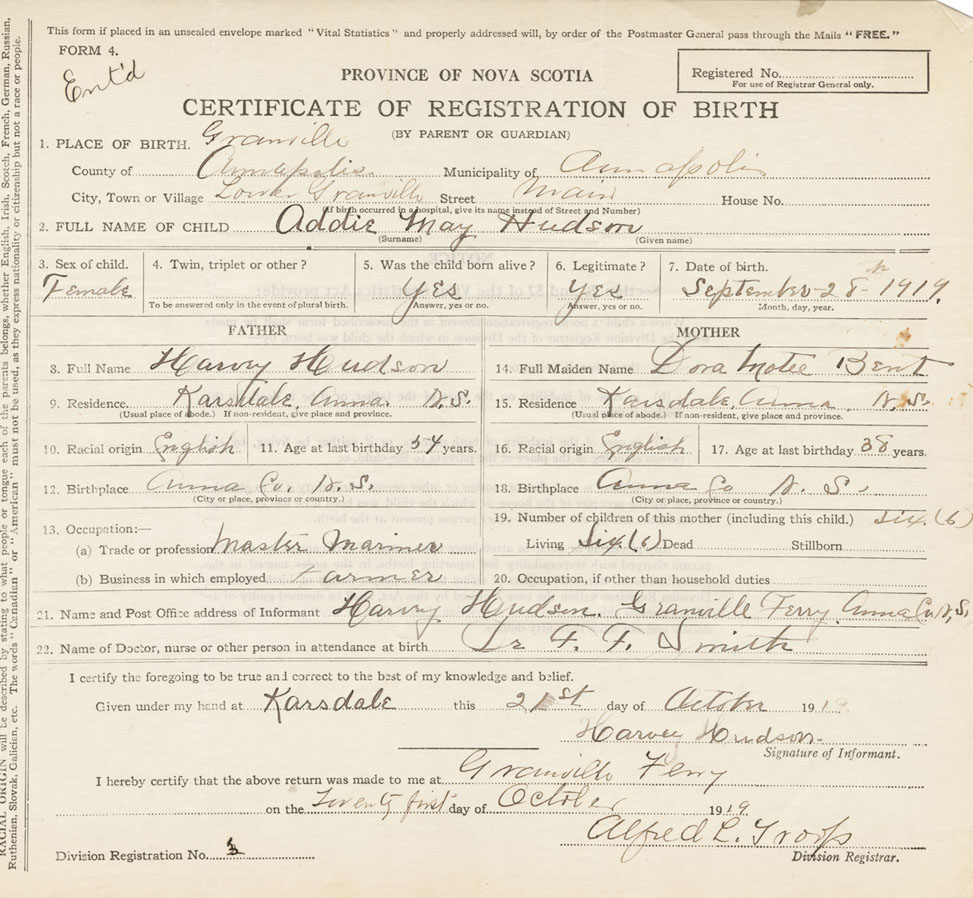 This form if placed in an unsealed envelope marked "Vital Statistics" and properly addressed will, by order of the Postmaster General pass through the Mails "FREE."
FORM 4.
Ent'd
PROVINCE OF NOVA SCOTIA
Registered No.
For use of Registrar General only.
CERTIFICATE OF REGISTRATION OF BIRTH
(BY PARENT OR GUARDIAN)
1. PLACE OF BIRTH. Granville
County of Annapolis Municipality of Annapolis
City, Town or Village Lower Granville Street Main House No.
(If birth occurred in a hospital, give its name instead of Street and Number)
2. FULL NAME OF CHILD Addie May Hudson
(Surname) (Given name)
3. Sex of child. 4. Twin, triplet or other? 5. Was the child born alive? 6. Legitimate? 7. Date of birth.
Female Yes Yes September 28th 1919.
To be answered only in the event of plural birth. Answer, yes or no. Answer, yes or no. Month, day, year.
FATHER MOTHER
8. Full Name Harvy Hudson 14. Full Maiden Name Dora Bent
9. Residence. Karsdale, Anna. N.S. 15. Residence Karsdale, Anna N.S.
(Usual place of abode.) If non-resident, give place and province. (Usual place of abode.) If non-resident, give place and province.
10. Racial origin English 11. Age at last birthday 54 years. 16. Racial origin English 17. Age at last birthday 38 years.
12. Birthplace Anna Co. N.S. 18. Birthplace Anna Co N.S.
(City or place, province or country.) (City or place, province or country.)
13. Occupation:— 19. Number of children of this mother (including this child.) Six (6)
(a) Trade or profession Master Mariner Living Six (6) Dead Stillborn
(b) Business in which employed Farmer 20. Occupation, if other than household duties
21. Name and Post Office address of Informant Harvy Hudson. Granville Ferry Anna Co. N.S.
22. Name of Doctor, nurse or other person in attendance at birth Dr F. F. Smith
I certify the foregoing to be true and correct to the best of my knowledge and belief.
Given under my hand at Karsdale this 21st day of October 1919
Harvey Hudson.
Signature of Informant.
I hereby certify that the above return was made to me at Granville Ferry
on the Twenty first day of October 1919.
Alfred L. Troop
Division Registrar.
Division Registration No. 3
RACIAL ORIGIN will be described by stating to what people or tongue each of the parents belongs, whether English, Irish, Scotch, French, German, Russian,
Ruthenian, Slovak, Galician, etc. The words "Canadian" or "American" must not be used, as they express nationality or citizenship but not a race or people.